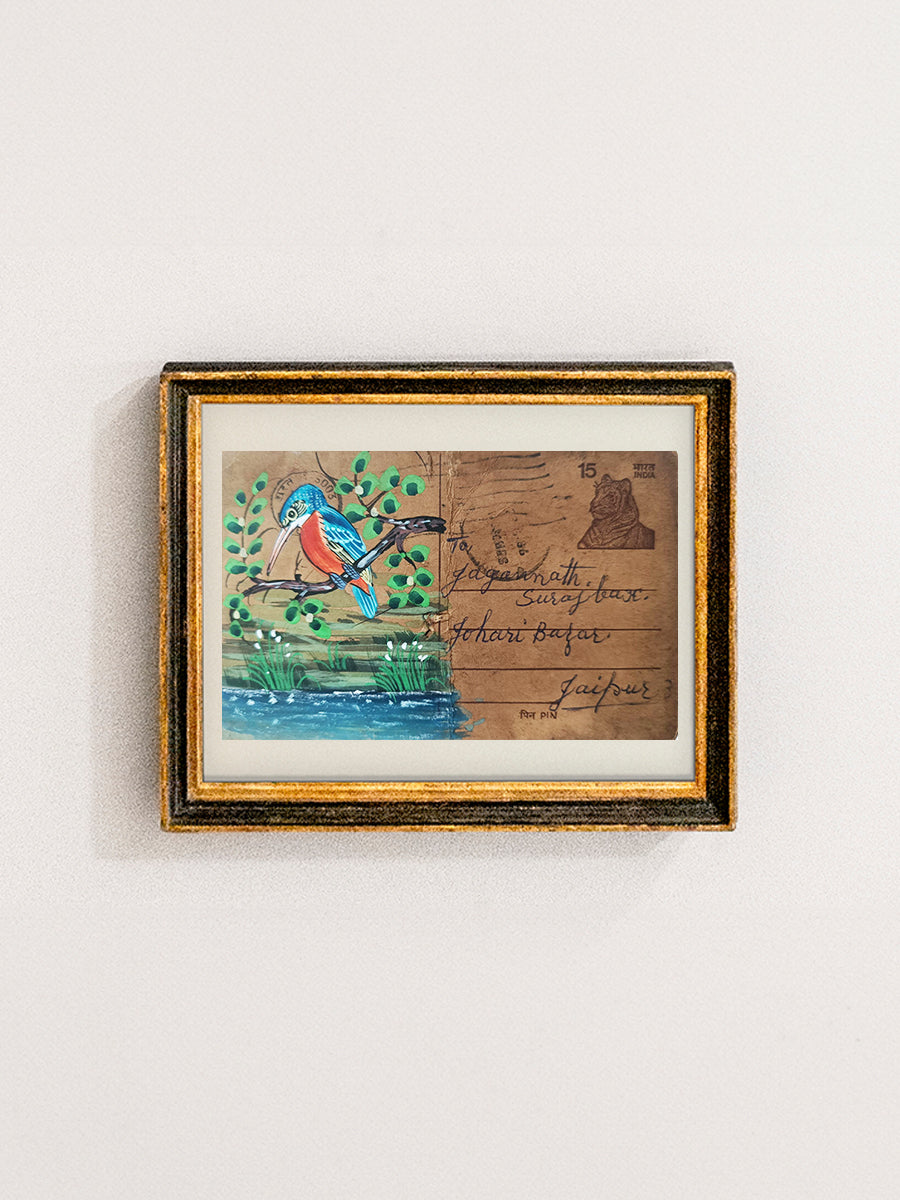 15 भारत
INDIA
To
Jagannath
Surajbax.
Johari Bazar.
Jaipur 3
पिन PIN